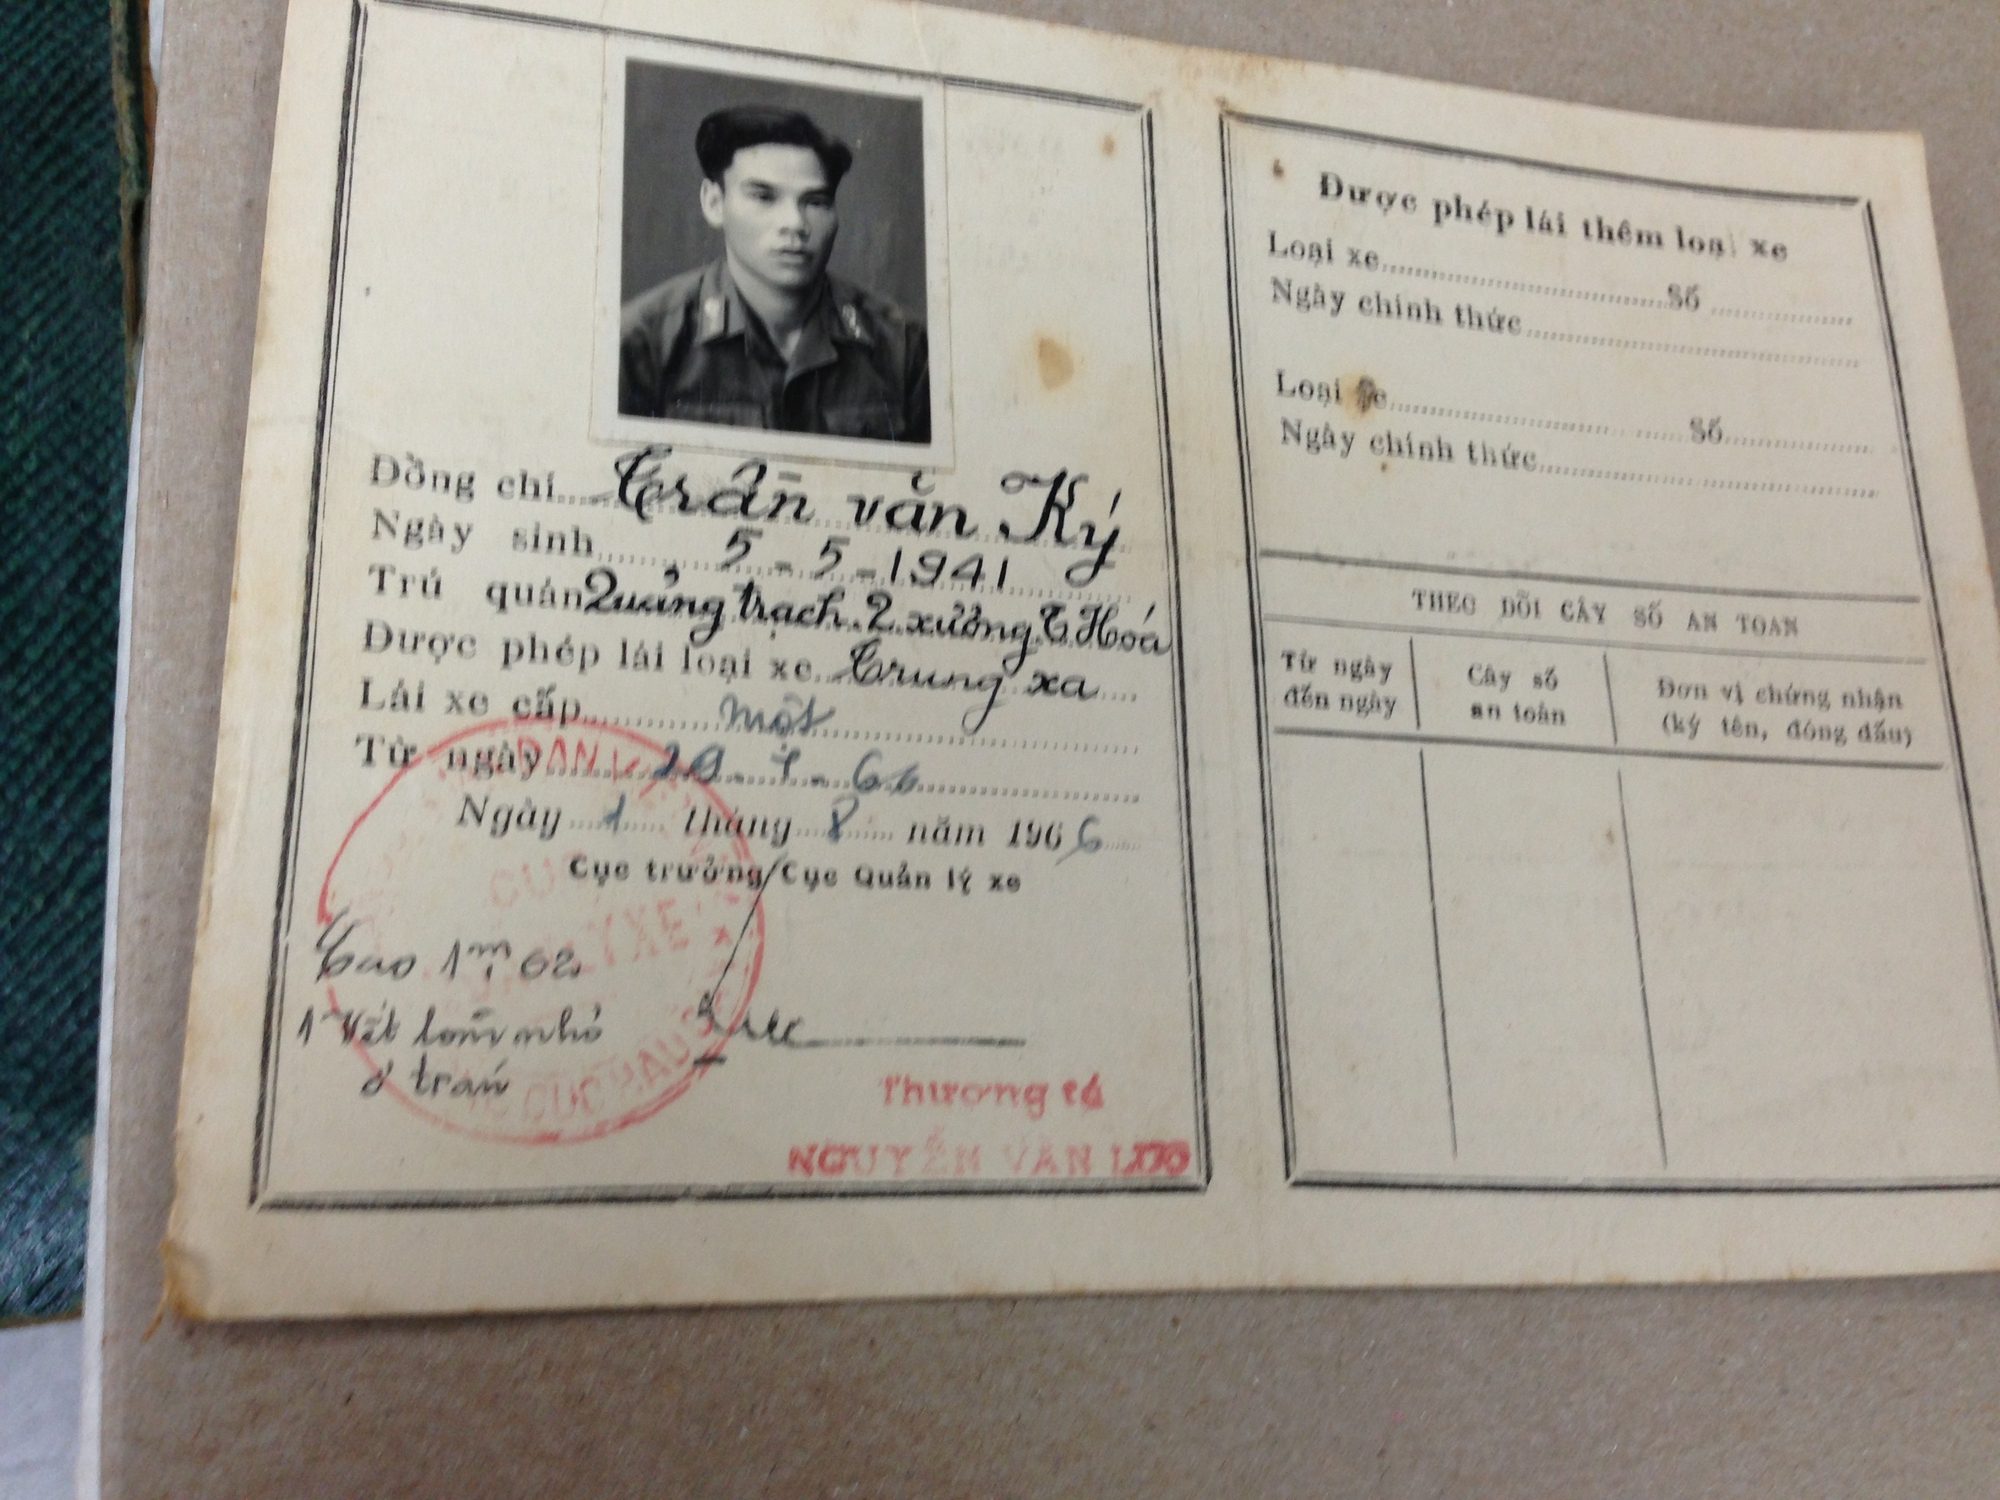 Đồng chí Trần văn Ký
Ngày sinh 5-5-1941
Trú quán Quảng trạch. 2 xưởng T Hóa
Được phép lái loại xe Trung xa
Lái xe cấp một
Từ ngày 20-7-66
Ngày 1 tháng 8 năm 1966
Cục trưởng Cục Quản lý xe
Cao 1m62
1 Vết lõm nhỏ
ở trán
Thượng tá
NGUYỄN VĂN
Được phép lái thêm loại xe
Loại xe Số
Ngày chính thức
Loại xe Số
Ngày chính thức
THEO DÕI CÂY SỐ AN TOÀN
Từ ngày đến ngày
Cây số an toàn
Đơn vị chứng nhận
(ký tên, đóng dấu)